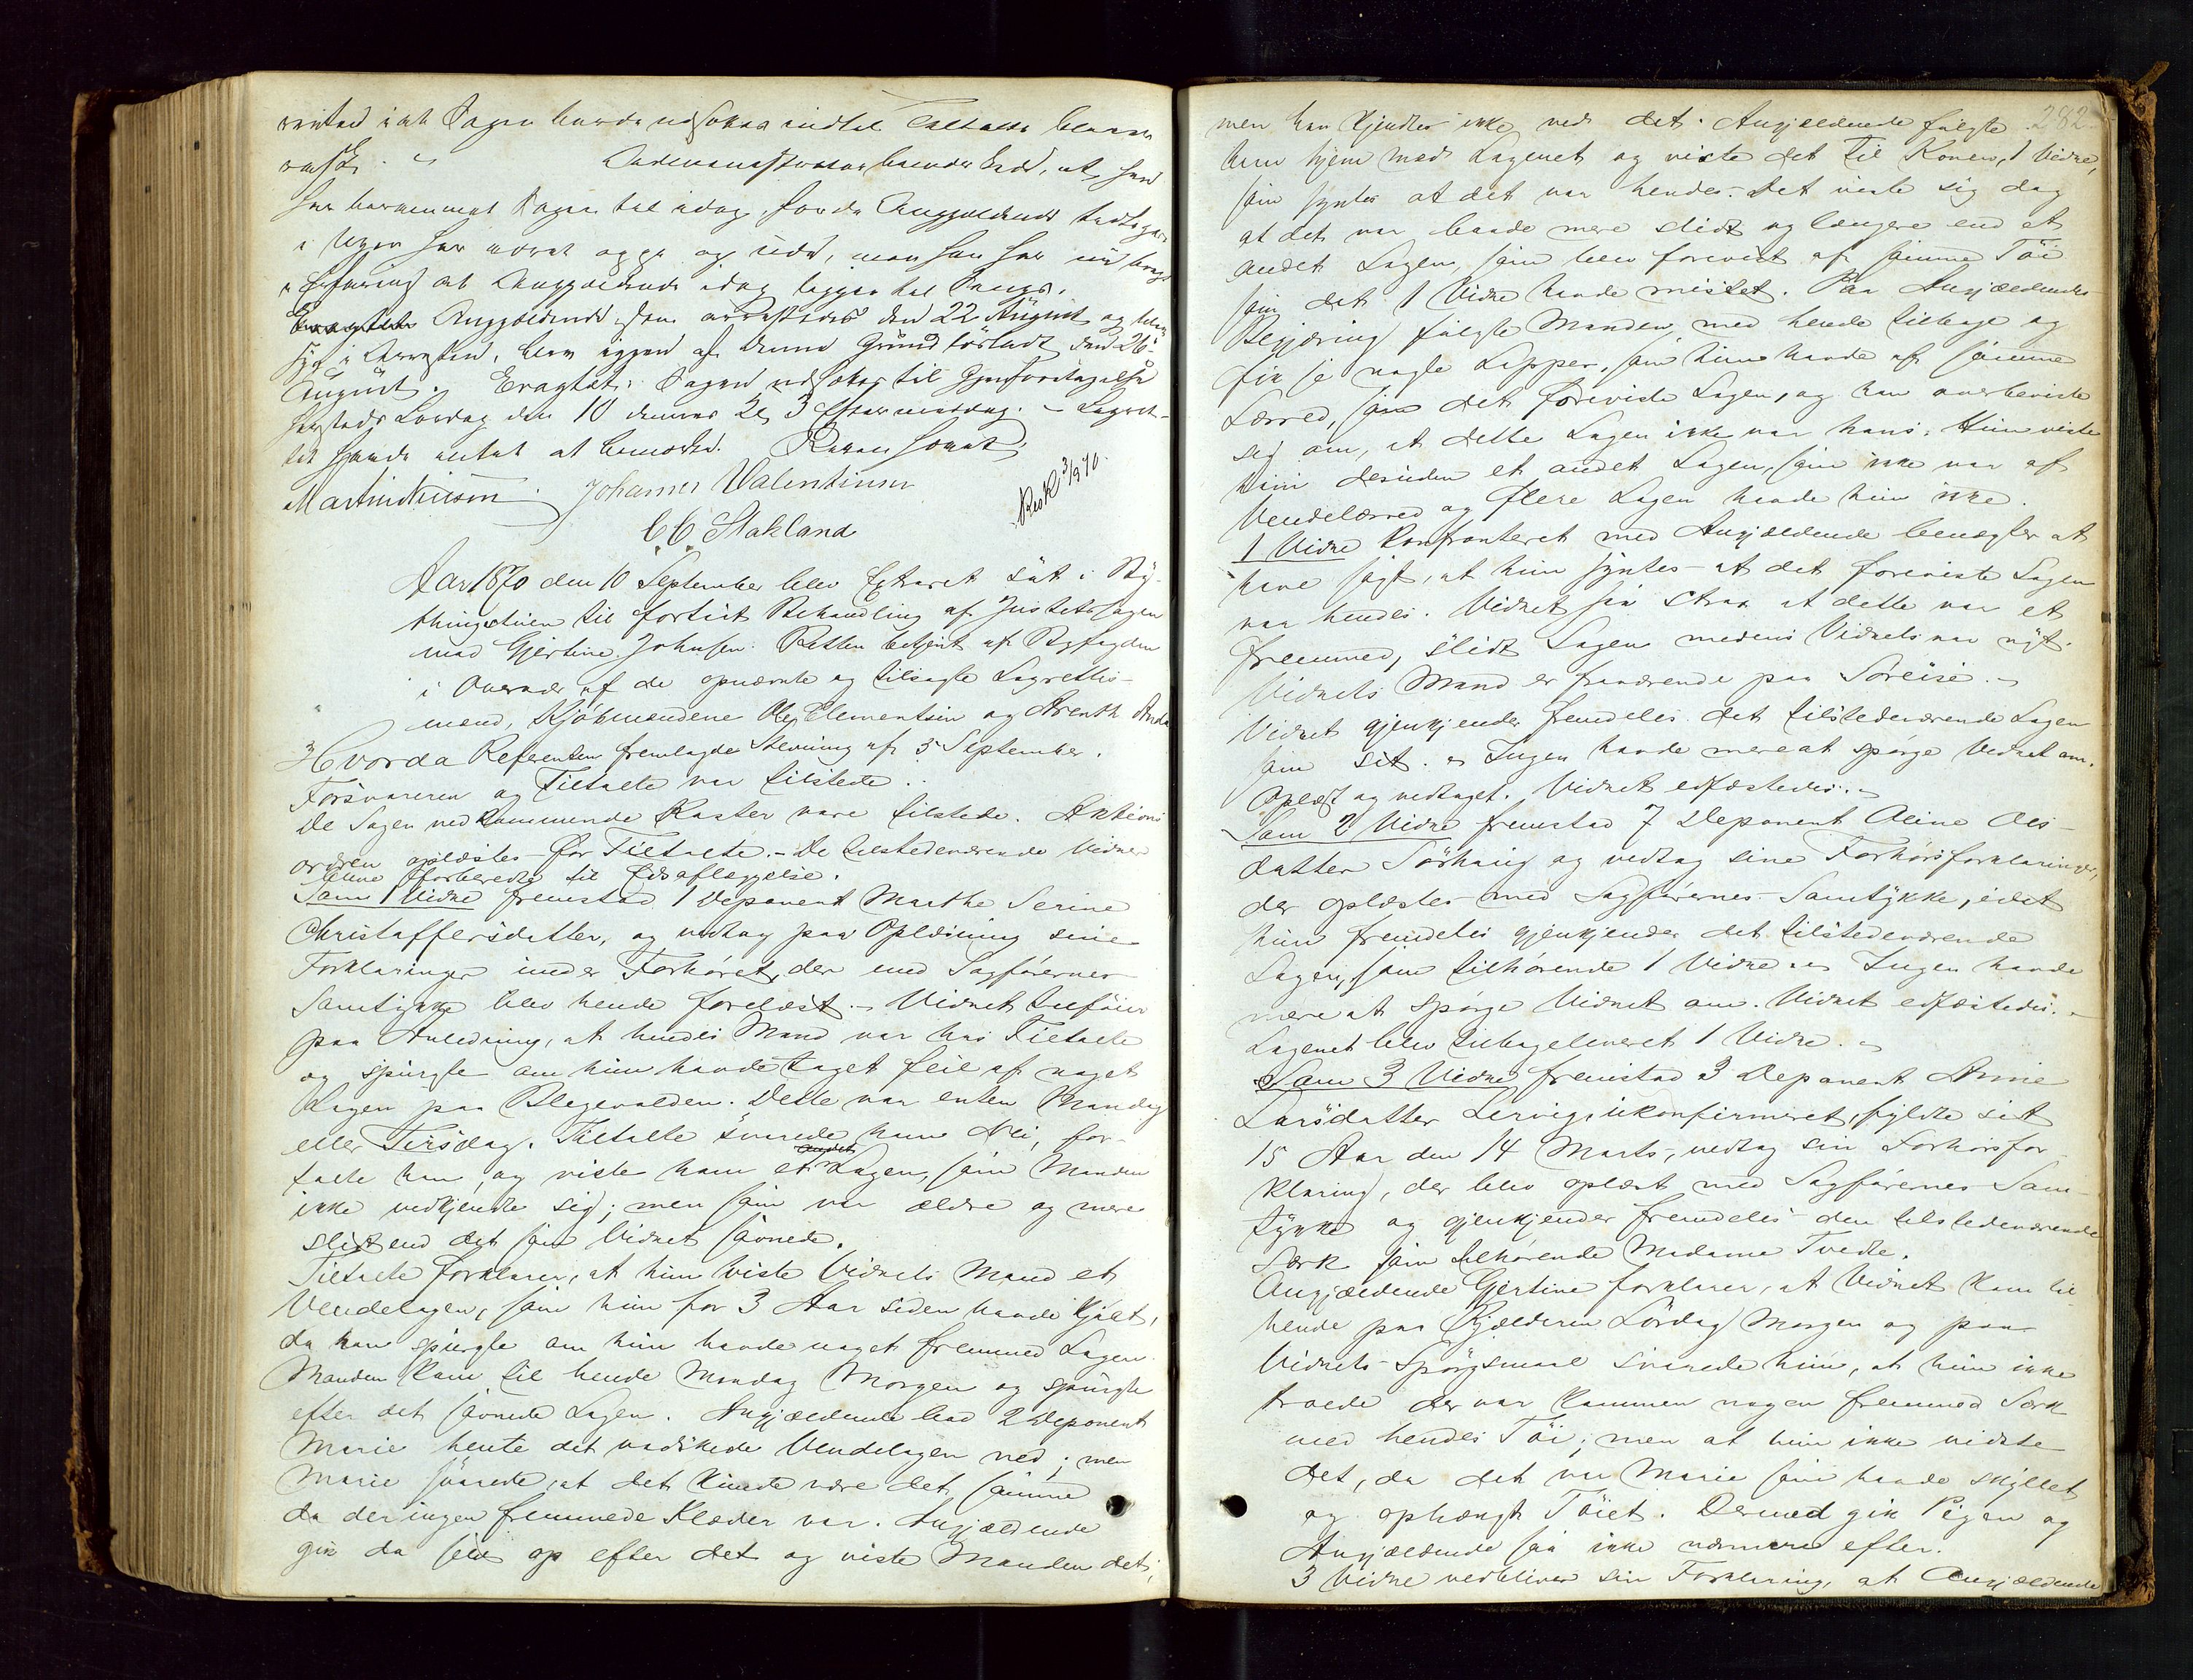 at Sagen burde udsættes indtil Tiltalte bliver
rask.
har berammet Sagen til idag, fordi Angjældende
i Ugen har været oppe og ude, men han har nu bragt
i Erfaring at Angjældende idag ligger til Sengs.
Angjældende, som arresteredes den 22 August og blev
syg i Arresten, blev igjen af denne Grund løsladt den 26
August. Eragtet: Sagen udsættes til Gjenforetagelse
Lørdag den 10 dennes Kl 3 Eftermiddag. Lagret-
tet havde intet at bemærke. Retten hævet
Johannes Valentinsen
C C Stakland
Besk 3/9 70.
Aar 1870 den 10 September blev Extraret sat i By-
thingstuen til fortsat Behandling af Justitssagen
mod Gjertine Johnsen. Retten betjent af Byfogden
i Overvær af de opnævnte og tilsagte Lagrettes-
mænd, Kjøbmændene Ole Clementsen og Arenth
Hvorda Referenten fremlagde Stevning af 5 September.
Forsvareren og Tiltalte var tilstede.
De Sagen vedkommende Koster vare tilstede. Aktions
ordren oplæstes for Tiltalte. De tilstedeværende Vidner
bleve forberedte til Edsaflæggelse.
Som 1 Vidne fremstod 1 Deponent Marthe Serine
Christoffersdatter, og vedtog paa Oplæsning sine
Forklaringer under Forhøret, der med Sagførernes
Samtykke blev hende forelæst. Vidnet tilføier
paa Anledning, at hendes Mand var hos Tiltalte
og spurgte om hun havde taget feil af noget
Lagen paa Blegevolden. Dette var enten Mandag
eller Tirsdag. Tiltalte svarede ham Nei, for-
talte han, og viste ham et andet Lagen, som Manden
ikke vedkjendte sig; men som var ældre og mere
slidt end det som Vidnet savnede.
Tiltalte forklarer, at hun viste Vidnets Mand et
Vendelagen, som hun for 3 Aar siden havde kjøbt,
da han spurgte om hun havde noget fremmed Lagen.
Manden kom til hende Mandag Morgen og spurgte
efter det savnede Lagen. Angjældende bad 2 Deponent
Marie hente det vadskede Vendelagen ned; men
Marie svarede, at det kunde være det samme
da der ingen fremmede Klæder var. Angjældende
gik da selv op efter det og viste Manden det;
282
men han kjendtes ikke ved det. Angjældende fulgte
ham hjem med Lagenet og viste det til Konen, 1 Vidne,
som syntes at det var hendes. Det viste sig dog
at det var baade mere slidt og længere end et
andet Lagen, som blev forevist af samme Tøi
som det 1 Vidne havde mistet. Paa Angjældendes
Begjæring fulgte Manden med hende tilbage og
fik se nogle Lapper, som hun havde af samme
Lærred, som det foreviste Lagen, og han overbeviste
sig om, at dette Lagen ikke var hans. Hun viste
ham desuden et andet Lagen, som ikke var af
Vendelærred og flere Lagen havde hun ikke.
1 Vidne konfronteret med Angjældende benægter at
have sagt, at hun syntes at det foreviste Lagen
var hendes. Vidnet saa strax at dette var et
fremmed, slidt Lagen medens Vidnets var nyt.
Vidnets Mand er fraværende paa Søreise.
Vidnet gjenkjender fremdeles det tilstedeværende Lagen
som sit. Ingen havde mere at spørge Vidnet om.
Oplæst og vedtaget. Vidnet edfæstedes.
Som 2 Vidne fremstod 7 Deponent Aline Ols-
datter Sørhaug og vedtog sine Forhørsforklaringer,
der oplæstes med Sagførernes Samtykke, idet
hun fremdeles gjenkjender det tilstedeværende
Lagen, som tilhørende 1 Vidne. Ingen havde
mere at spørge Vidnet om. Vidnet edfæstedes.
Lagenet blev tilbageleveret 1 Vidne.
Som 3 Vidne fremstod 3 Deponent Anne
Larsdatter Lervig, ukonfirmeret, fyldte sit
15 Aar den 14 Marts, vedtog sin Forhørsfor
klaring, der blev oplæst med Sagførernes Sam-
tykke og gjenkjender fremdeles den tilstedeværende
Særk som tilhørende Madame Tvedte.
Angjældende Gjertine forklarer, at Vidnet kom til
hende paa Kjælderen Lørdag Morgen og paa
Vidnets Spørgsmaal svarede hun, at hun ikke
troede der var kommen nogen fremmed Særk
med hendes Tøi; men at hun ikke vidste
det, da det var Marie som havde skyllet
og ophængt Tøiet. Dermed gik Pigen og
Angjældende saa ikke nærmere efter.
3 Vidne vedbliver sin Forklaring, at Angjældende